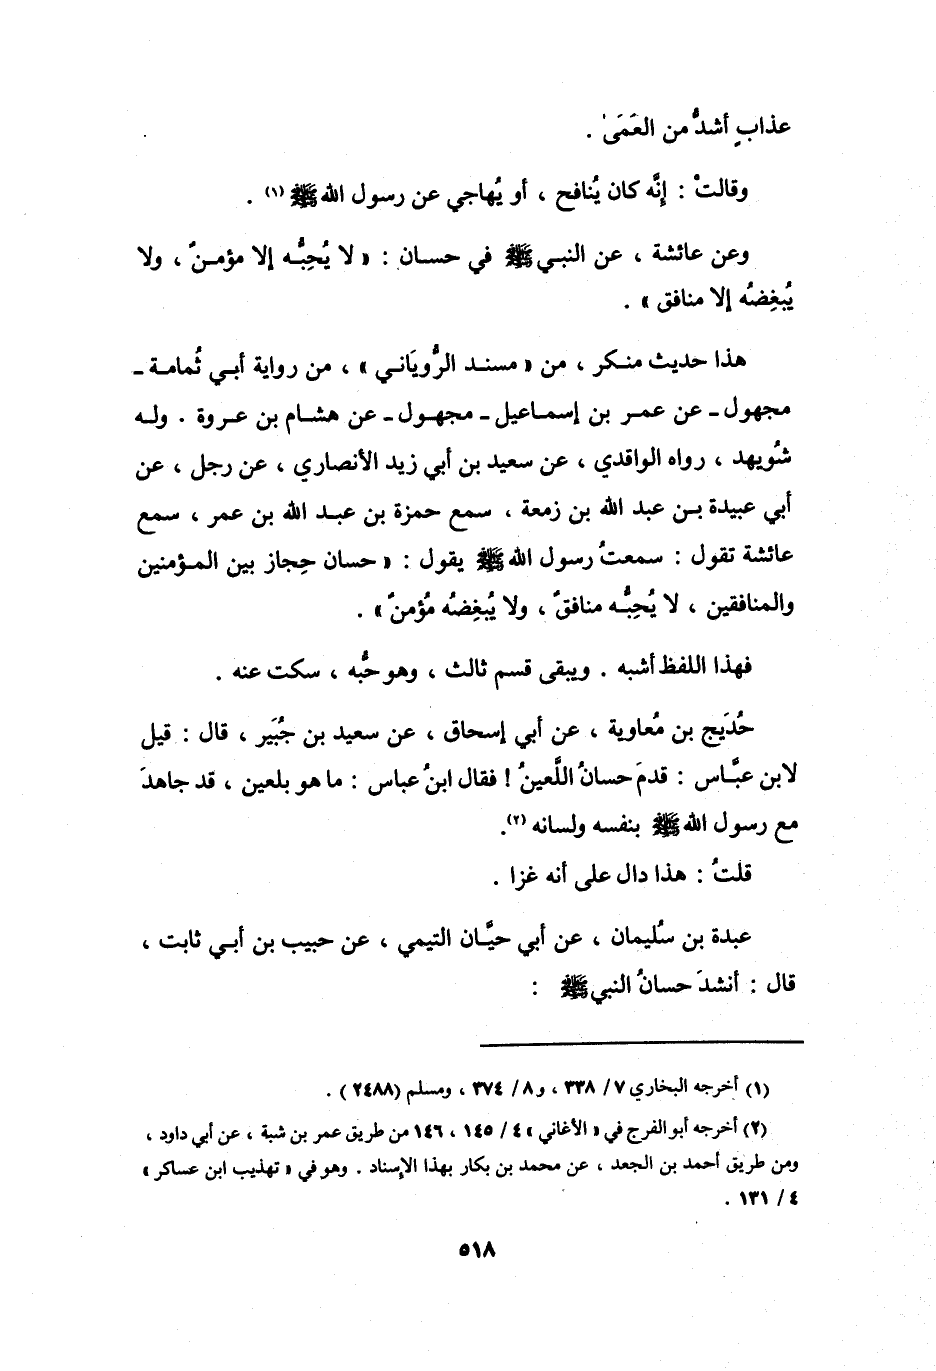 عذابٍ أشدُّ من العَمَىٰ .
وقالتْ : إنَّه كان يُنافح ، أو يُهاجي عن رسول الله ﷺ (١) .
وعن عائشة ، عن النبي ﷺ في حسان : « لا يُحِبُّه إلا مؤمنٌ ، ولا
يُبغِضُه إلا منافق » .
هذا حديث منكر ، من « مسند الرُّويَاني » ، من رواية أبي ثُمامة ـ
مجهول ـ عن عمر بن إسماعيل ـ مجهول ـ عن هشام بن عروة . وله
شُويهد ، رواه الواقدي ، عن سعيد بن أبي زيد الأنصاري ، عن رجل ، عن
أبي عبيدة بن عبد الله بن زمعة ، سمع حمزة بن عبد الله بن عمر ، سمع
عائشة تقول : سمعتُ رسول الله ﷺ يقول : « حسان حِجاز بين المؤمنين
والمنافقين ، لا يُحِبُّه منافقٌ ، ولا يُبغِضُه مُؤمنٌ » .
فهذا اللفظ أشبه . ويبقى قسم ثالث ، وهو حُبُّه ، سكت عنه .
حُدَيج بن مُعاوية ، عن أبي إسحاق ، عن سعيد بن جُبَير ، قال : قيل
لابن عبَّاس : قدمَ حسانُ اللَّعينُ ! فقال ابنُ عباس : ما هو بلعين ، قد جاهدَ
مع رسول الله ﷺ بنفسه ولسانه (٢).
قلتُ : هذا دال على أنه غزا .
عبدة بن سُليمان ، عن أبي حيَّان التيمي ، عن حبيب بن أبي ثابت ،
قال : أنشدَ حسانُ النبي ﷺ :
(١) أخرجه البخاري ٧/ ٣٣٨ ، و٨/ ٣٧٤ ، ومسلم (٢٤٨٨) .
(٢) أخرجه أبو الفرج في « الأغاني » ٤/ ١٤٥ ، ١٤٦ من طريق عمر بن شبة ، عن أبي داود ،
ومن طريق أحمد بن الجعد ، عن محمد بن بكار بهذا الإسناد . وهو في « تهذيب ابن عساكر »
٤/ ١٣١ .
٥١٨